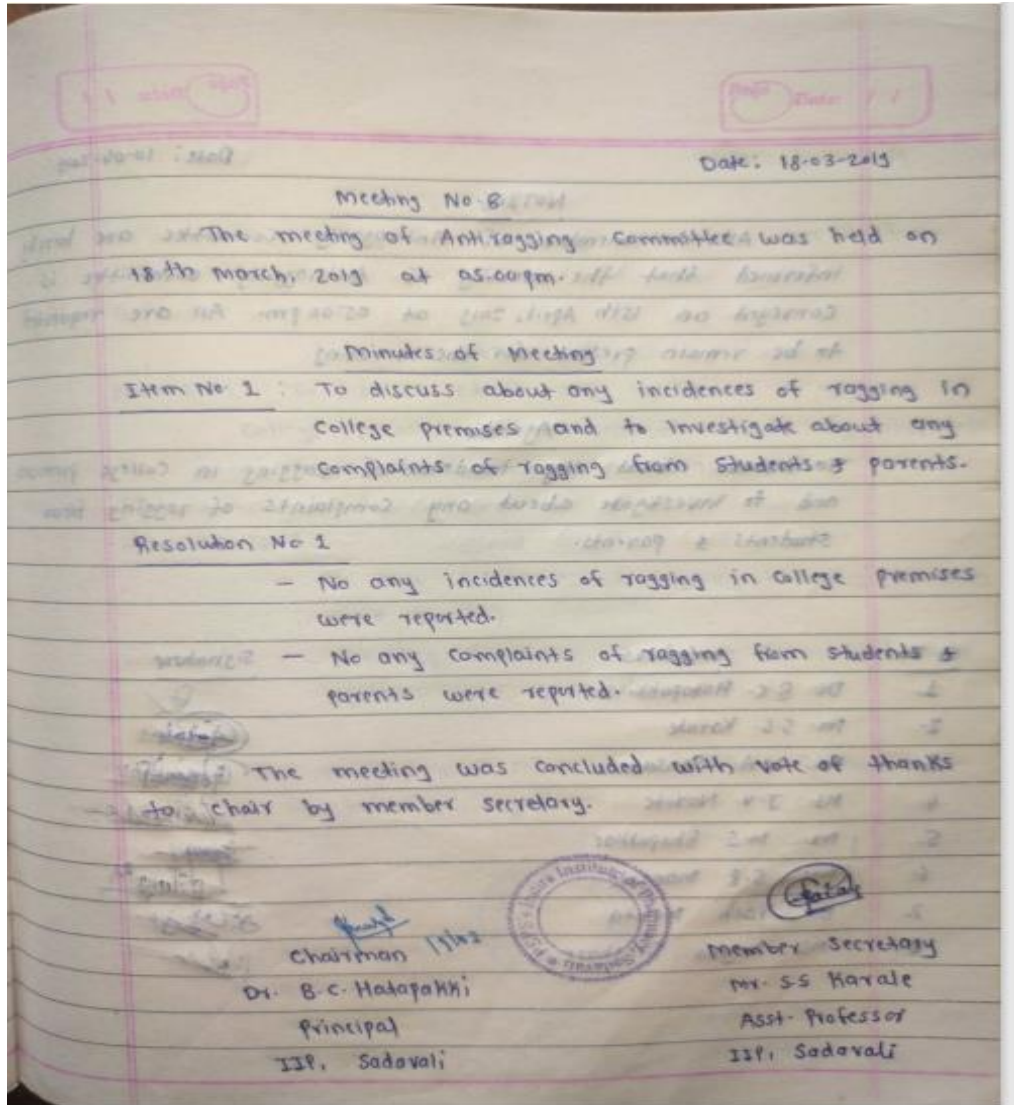 Date: 18-03-2019
Meeting No. 8
The meeting of Antiragging Committee was held on
18th March, 2019 at 05.00 pm.
Minutes of Meeting
Item No. 1 : To discuss about any incidences of ragging in
College premises and to Investigate about any
Complaints of ragging from Students & parents.
Resolution No 1
- No any incidences of ragging in College premises
were reported.
- No any Complaints of ragging from students &
parents were reported.
The meeting was concluded with vote of thanks
to chair by member secretary.
Institute of Pharmacy, Sadavali
Chairman
Member Secretary
Dr. B.C. Hatapakki
Mr. S.S Karale
Principal
Asst. Professor
IIP, Sadavali
IIP, Sadavali